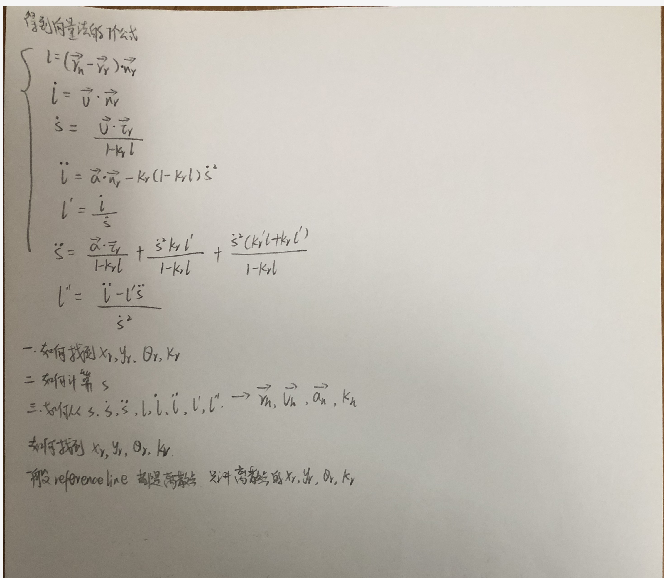 得到向量法的7个公式
l = (\vec{r_h} - \vec{r_r}) · \vec{n_r}
\dot{l} = \vec{v} · \vec{n_r}
\dot{s} = \frac{\vec{v} · \vec{τ_r}}{1 - k_r l}
\ddot{l} = \vec{a} · \vec{n_r} - k_r (1 - k_r l) \dot{s}^2
l' = \frac{\dot{l}}{\dot{s}}
\ddot{s} = \frac{\vec{a} · \vec{τ_r}}{1 - k_r l} + \frac{\dot{s}^2 k_r l'}{1 - k_r l} + \frac{\dot{s}^2 (k_r' l + k_r l')}{1 - k_r l}
l'' = \frac{\ddot{l} - l' \ddot{s}}{\dot{s}^2}
一.如何找到 x_r, y_r, θ_r, k_r
二 如何计算 s
三.如何从 s, \dot{s}, \ddot{s}, l, \dot{l}, \ddot{l}, l', l'' → \vec{r_h}, \vec{v_h}, \vec{a_h}, k_h
如何找到 x_r, y_r, θ_r, k_r
假设 reference line 都是离散点 先计 离散点的 x_r, y_r, θ_r, k_r